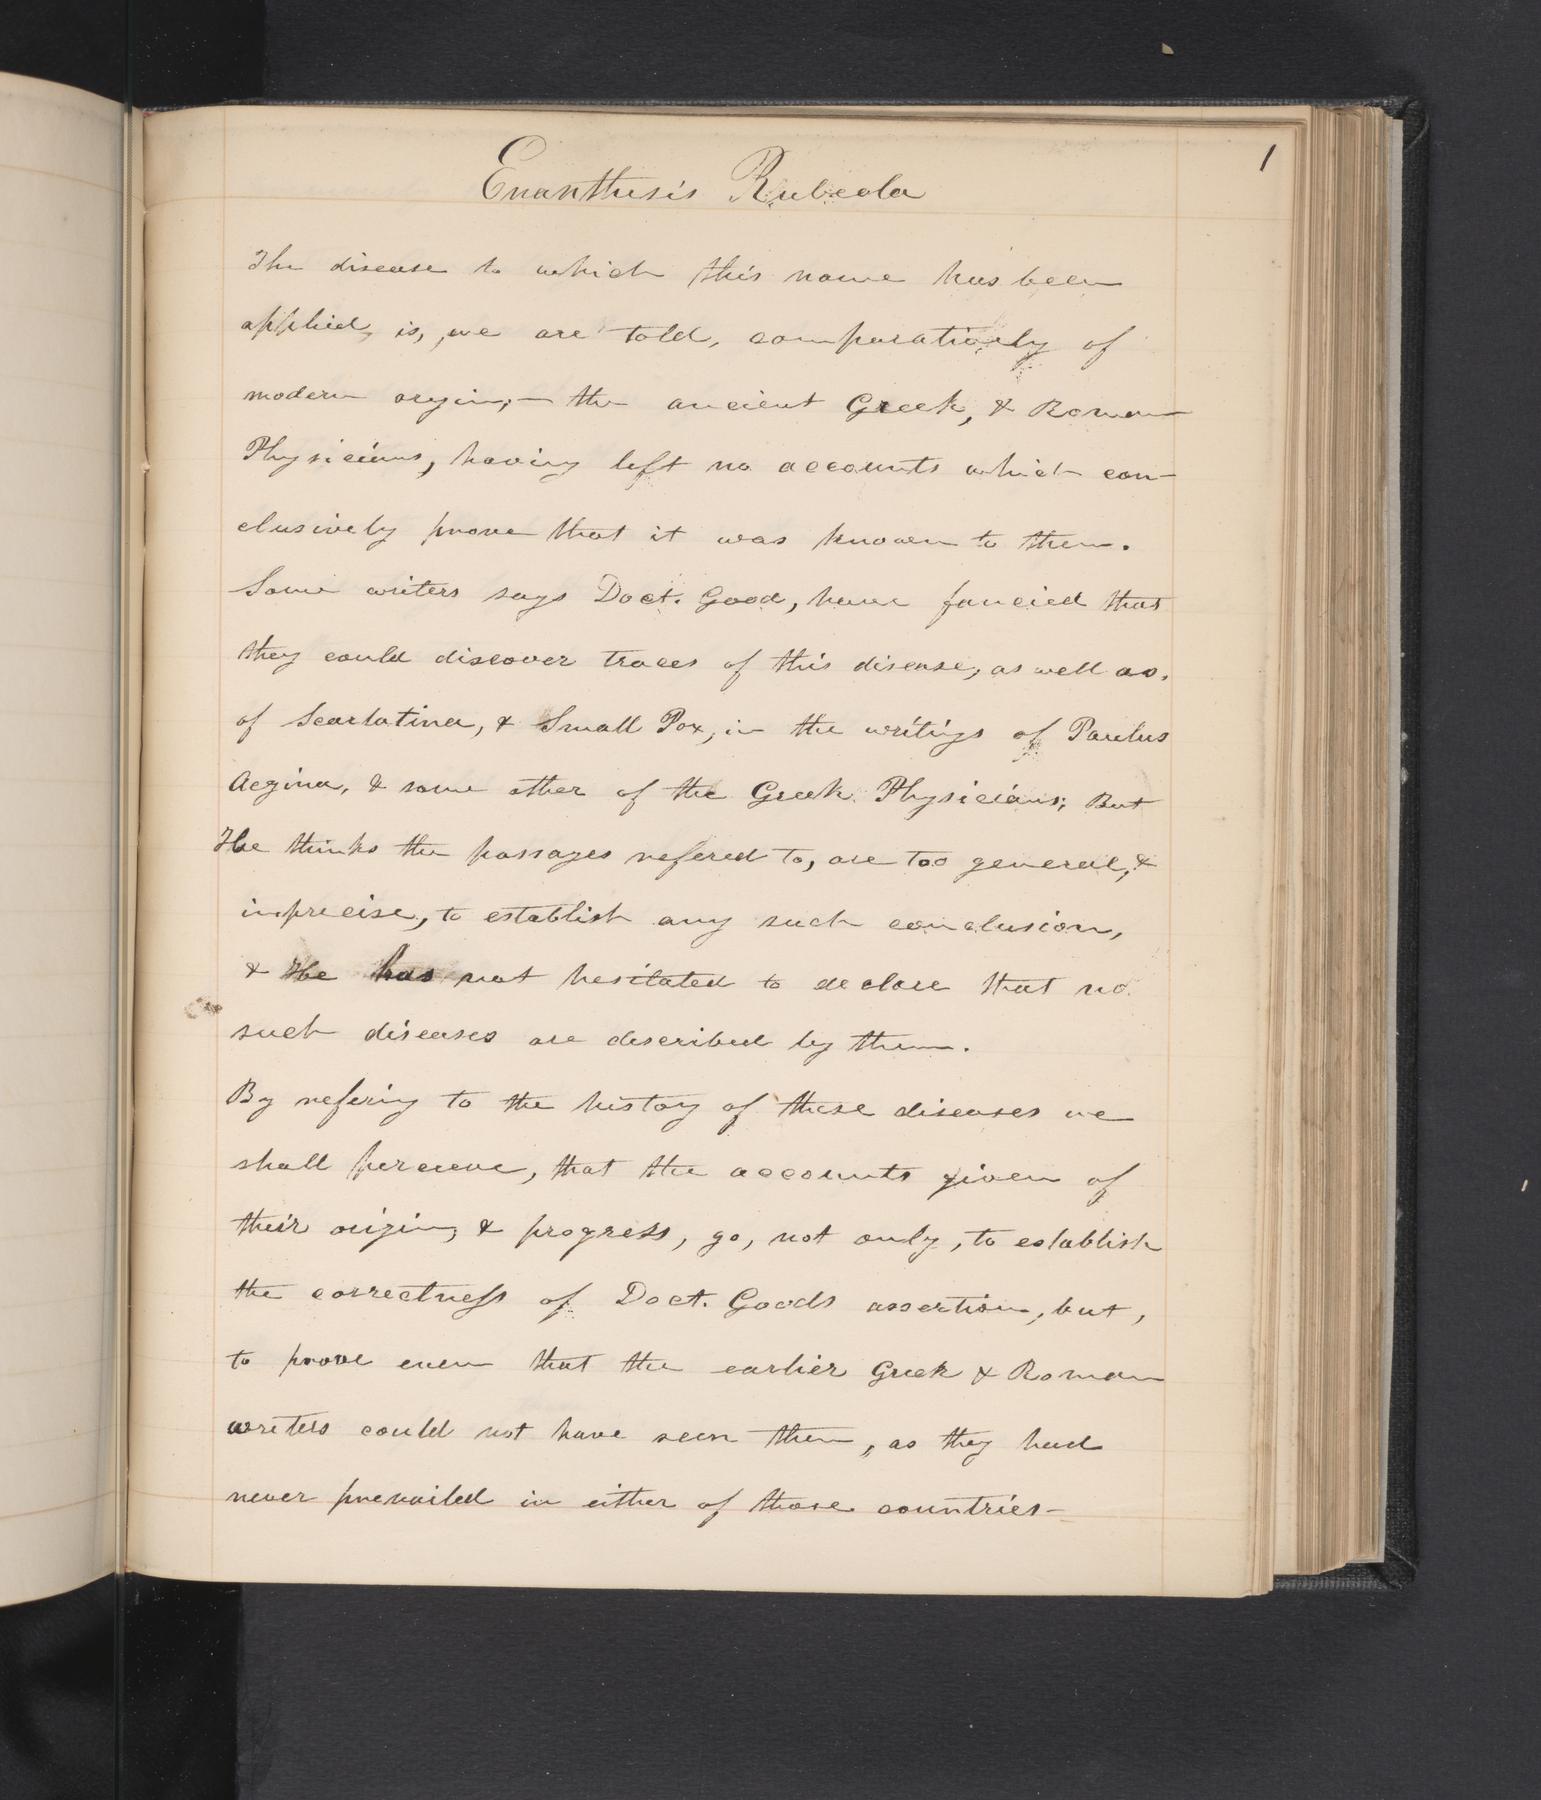 1
Enanthesis Rubeola
The disease to which this name has been
applied, is, we are told, comparatively of
modern orygin;— the ancient Greek, & Roman
Physicians, having left no accounts which con-
clusively prove that it was known to them.
Some writers says Doct. Good, have fancied that
they could discover traces of this disease, as well as.
of Scarlatina, & Small Pox, in the writings of Paulus
Aegina, & some other of the Greek Physicians; But
He thinks the passages refered to, are too general, &
imprecise, to establish any such conclusion,
& He has not hesitated to declare that no
such diseases are described by them.
By refering to the history of these diseases we
shall perceive, that the accounts given of
their origin, & progress, go, not only, to establish
the correctness of Doct. Goods assertion, but,
to prove even that the earlier Greek & Roman
writers could not have seen them, as they had
never prevailed in either of those countries—